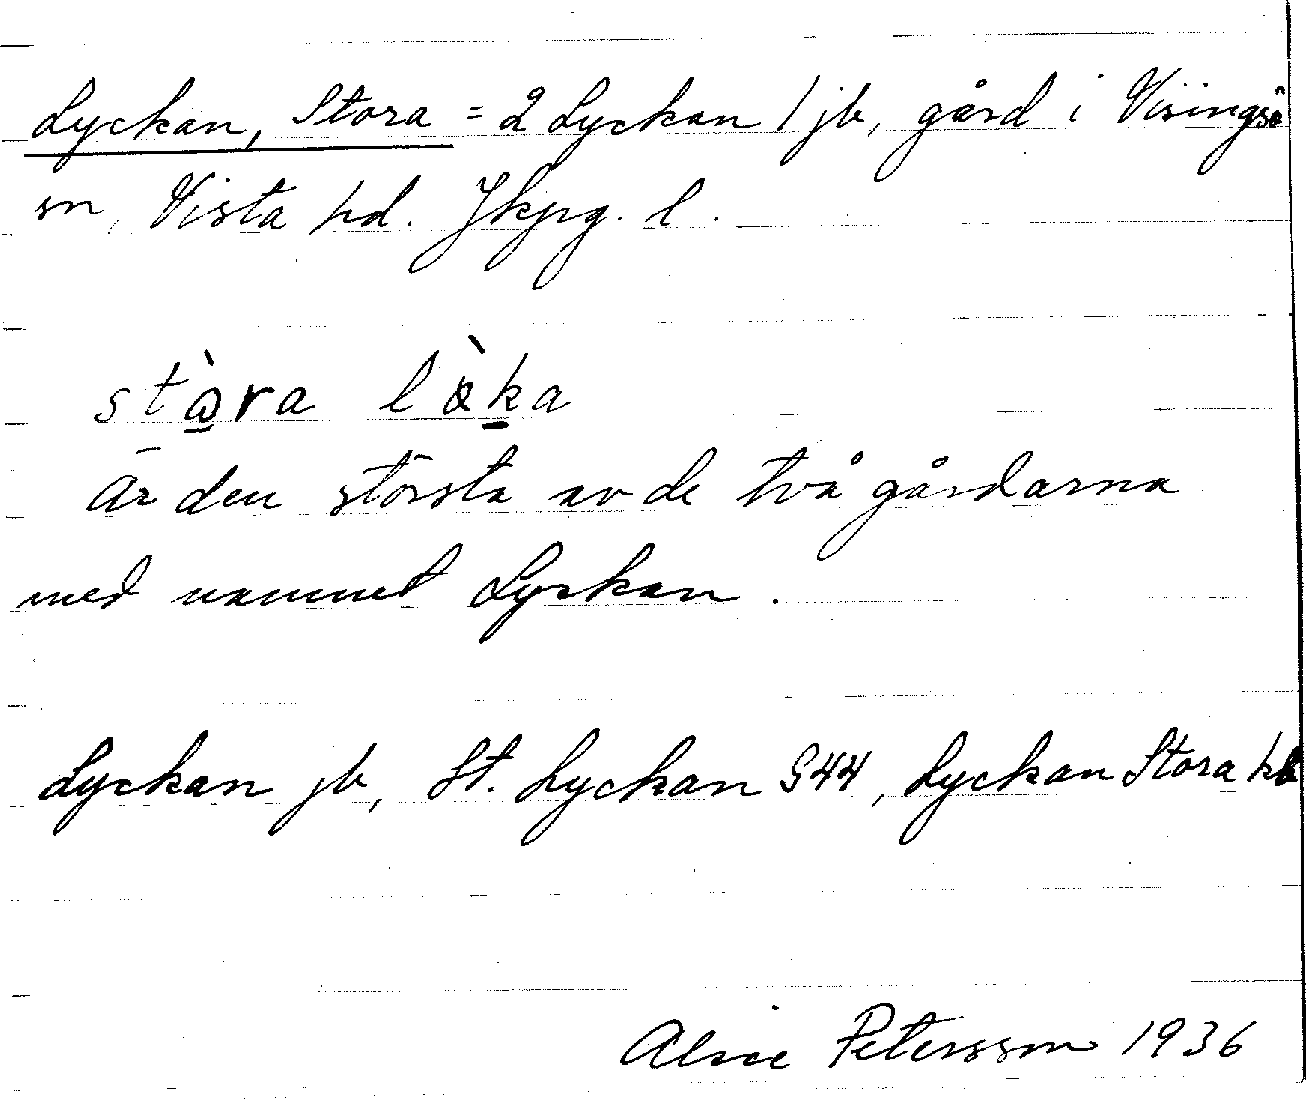 Lyckan, Stora = 2 Lyckan 1 jb, gård i Visingsö
sn, Vista hd. Jkpg. l.
Är den största av de två gårdarna
med namnet Lyckan.
Lyckan jb, St. Lyckan S44, Lyckan Stora hb
Alice Petersson 1936